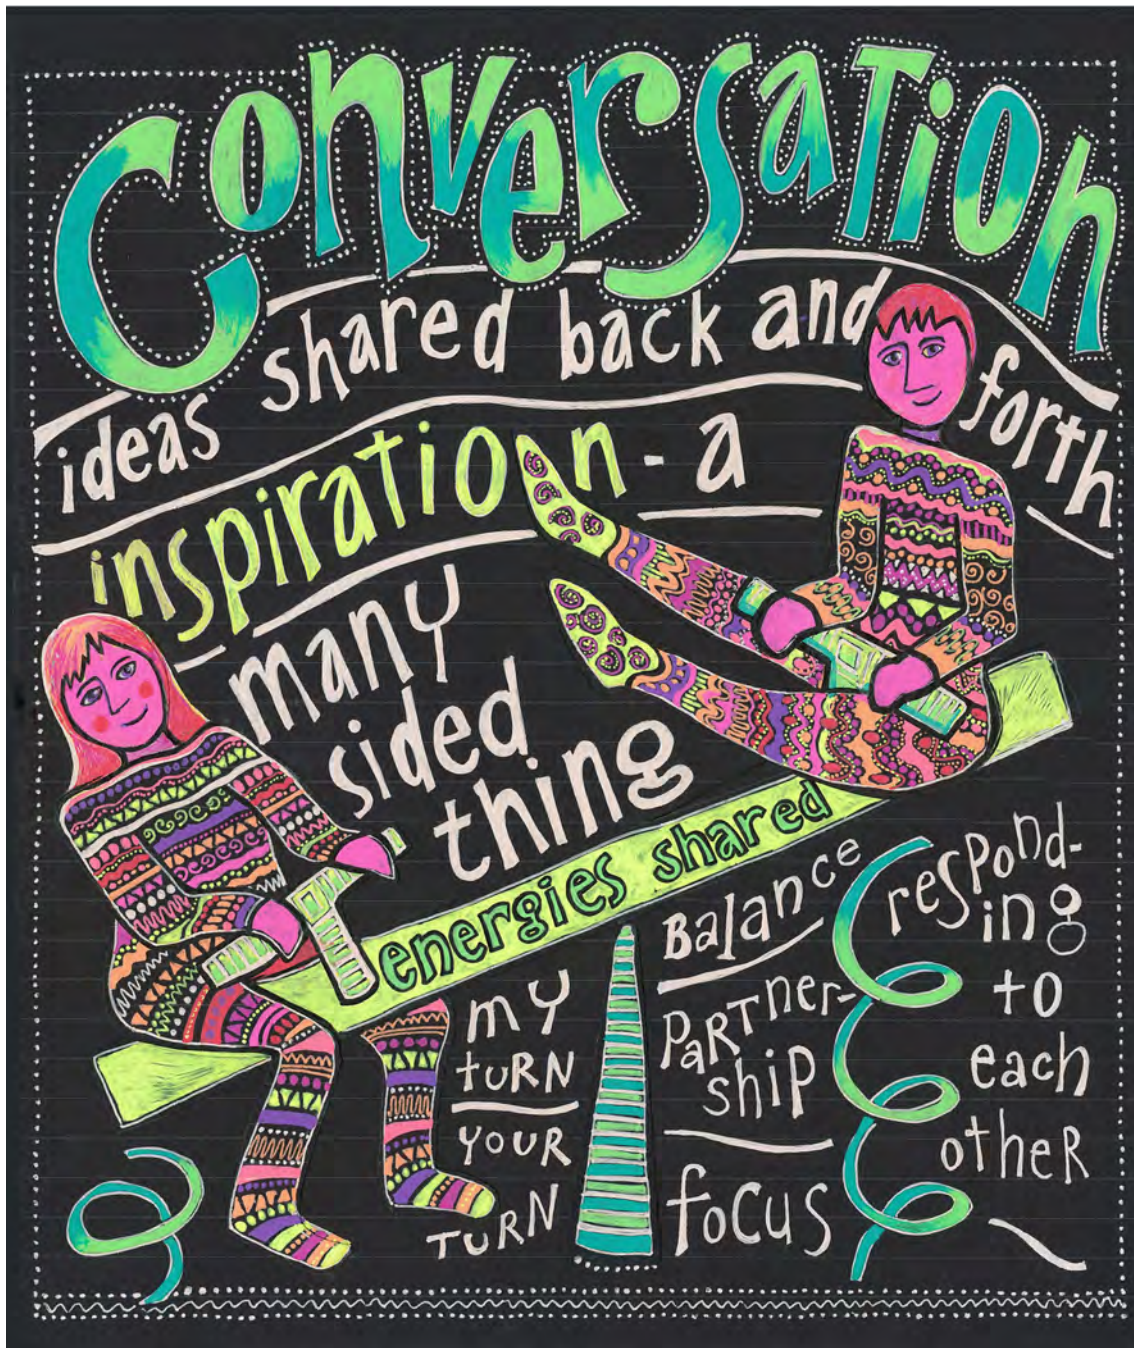 Conversation
ideas shared back and forth
inspiration - a
many
sided
thing
energies shared
my
turn
your
turn
Balance
Partner-
ship
focus
respond-
ing
to
each
other